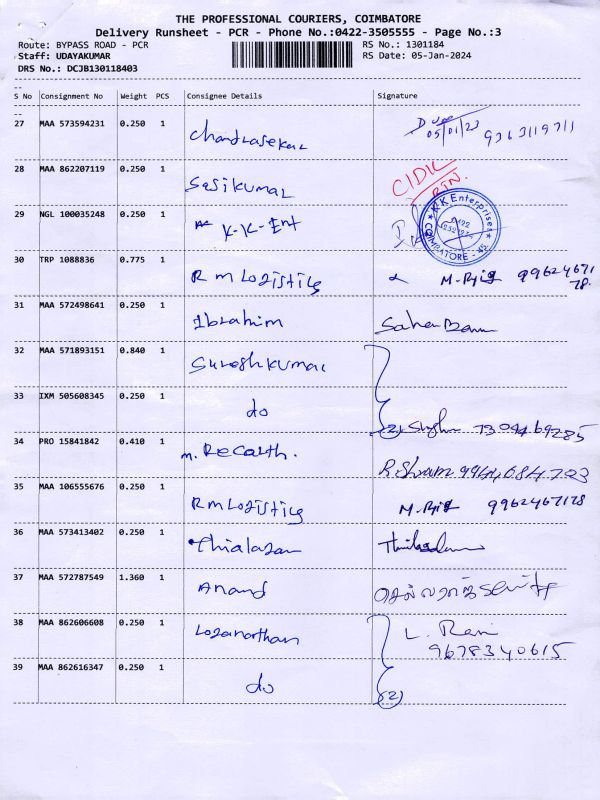 THE PROFESSIONAL COURIERS, COIMBATORE
Delivery Runsheet - PCR - Phone No.:0422-3505555 - Page No.:3
Route: BYPASS ROAD - PCR RS No.: 1301184
Staff: UDAYAKUMAR RS Date: 05-Jan-2024
DRS No.: DCJB130118403
S No Consignment No Weight PCS Consignee Details Signature
27 MAA 573594231 0.250 1 Chandrasekar 05/01/23 9363119711
28 MAA 862207119 0.250 1 Sasikumar
29 NGL 100035248 0.250 1 K-K-Ent
KK Enterprises
COIMBATORE - 45.
30 TRP 1088836 0.775 1 RM Logistics
31 MAA 572498641 0.250 1 Ibrahim
32 MAA 571893151 0.840 1 Sureshkumar
33 IXM 505608345 0.250 1 do (2)
34 PRO 15841842 0.410 1 m. Recalth.
35 MAA 106555676 0.250 1 RM Logistics 9962467178
36 MAA 573413402 0.250 1
37 MAA 572787549 1.360 1 Anand
38 MAA 862606608 0.250 1 Loganathan L. Ravi
9678340615
39 MAA 862616347 0.250 1 do (2)